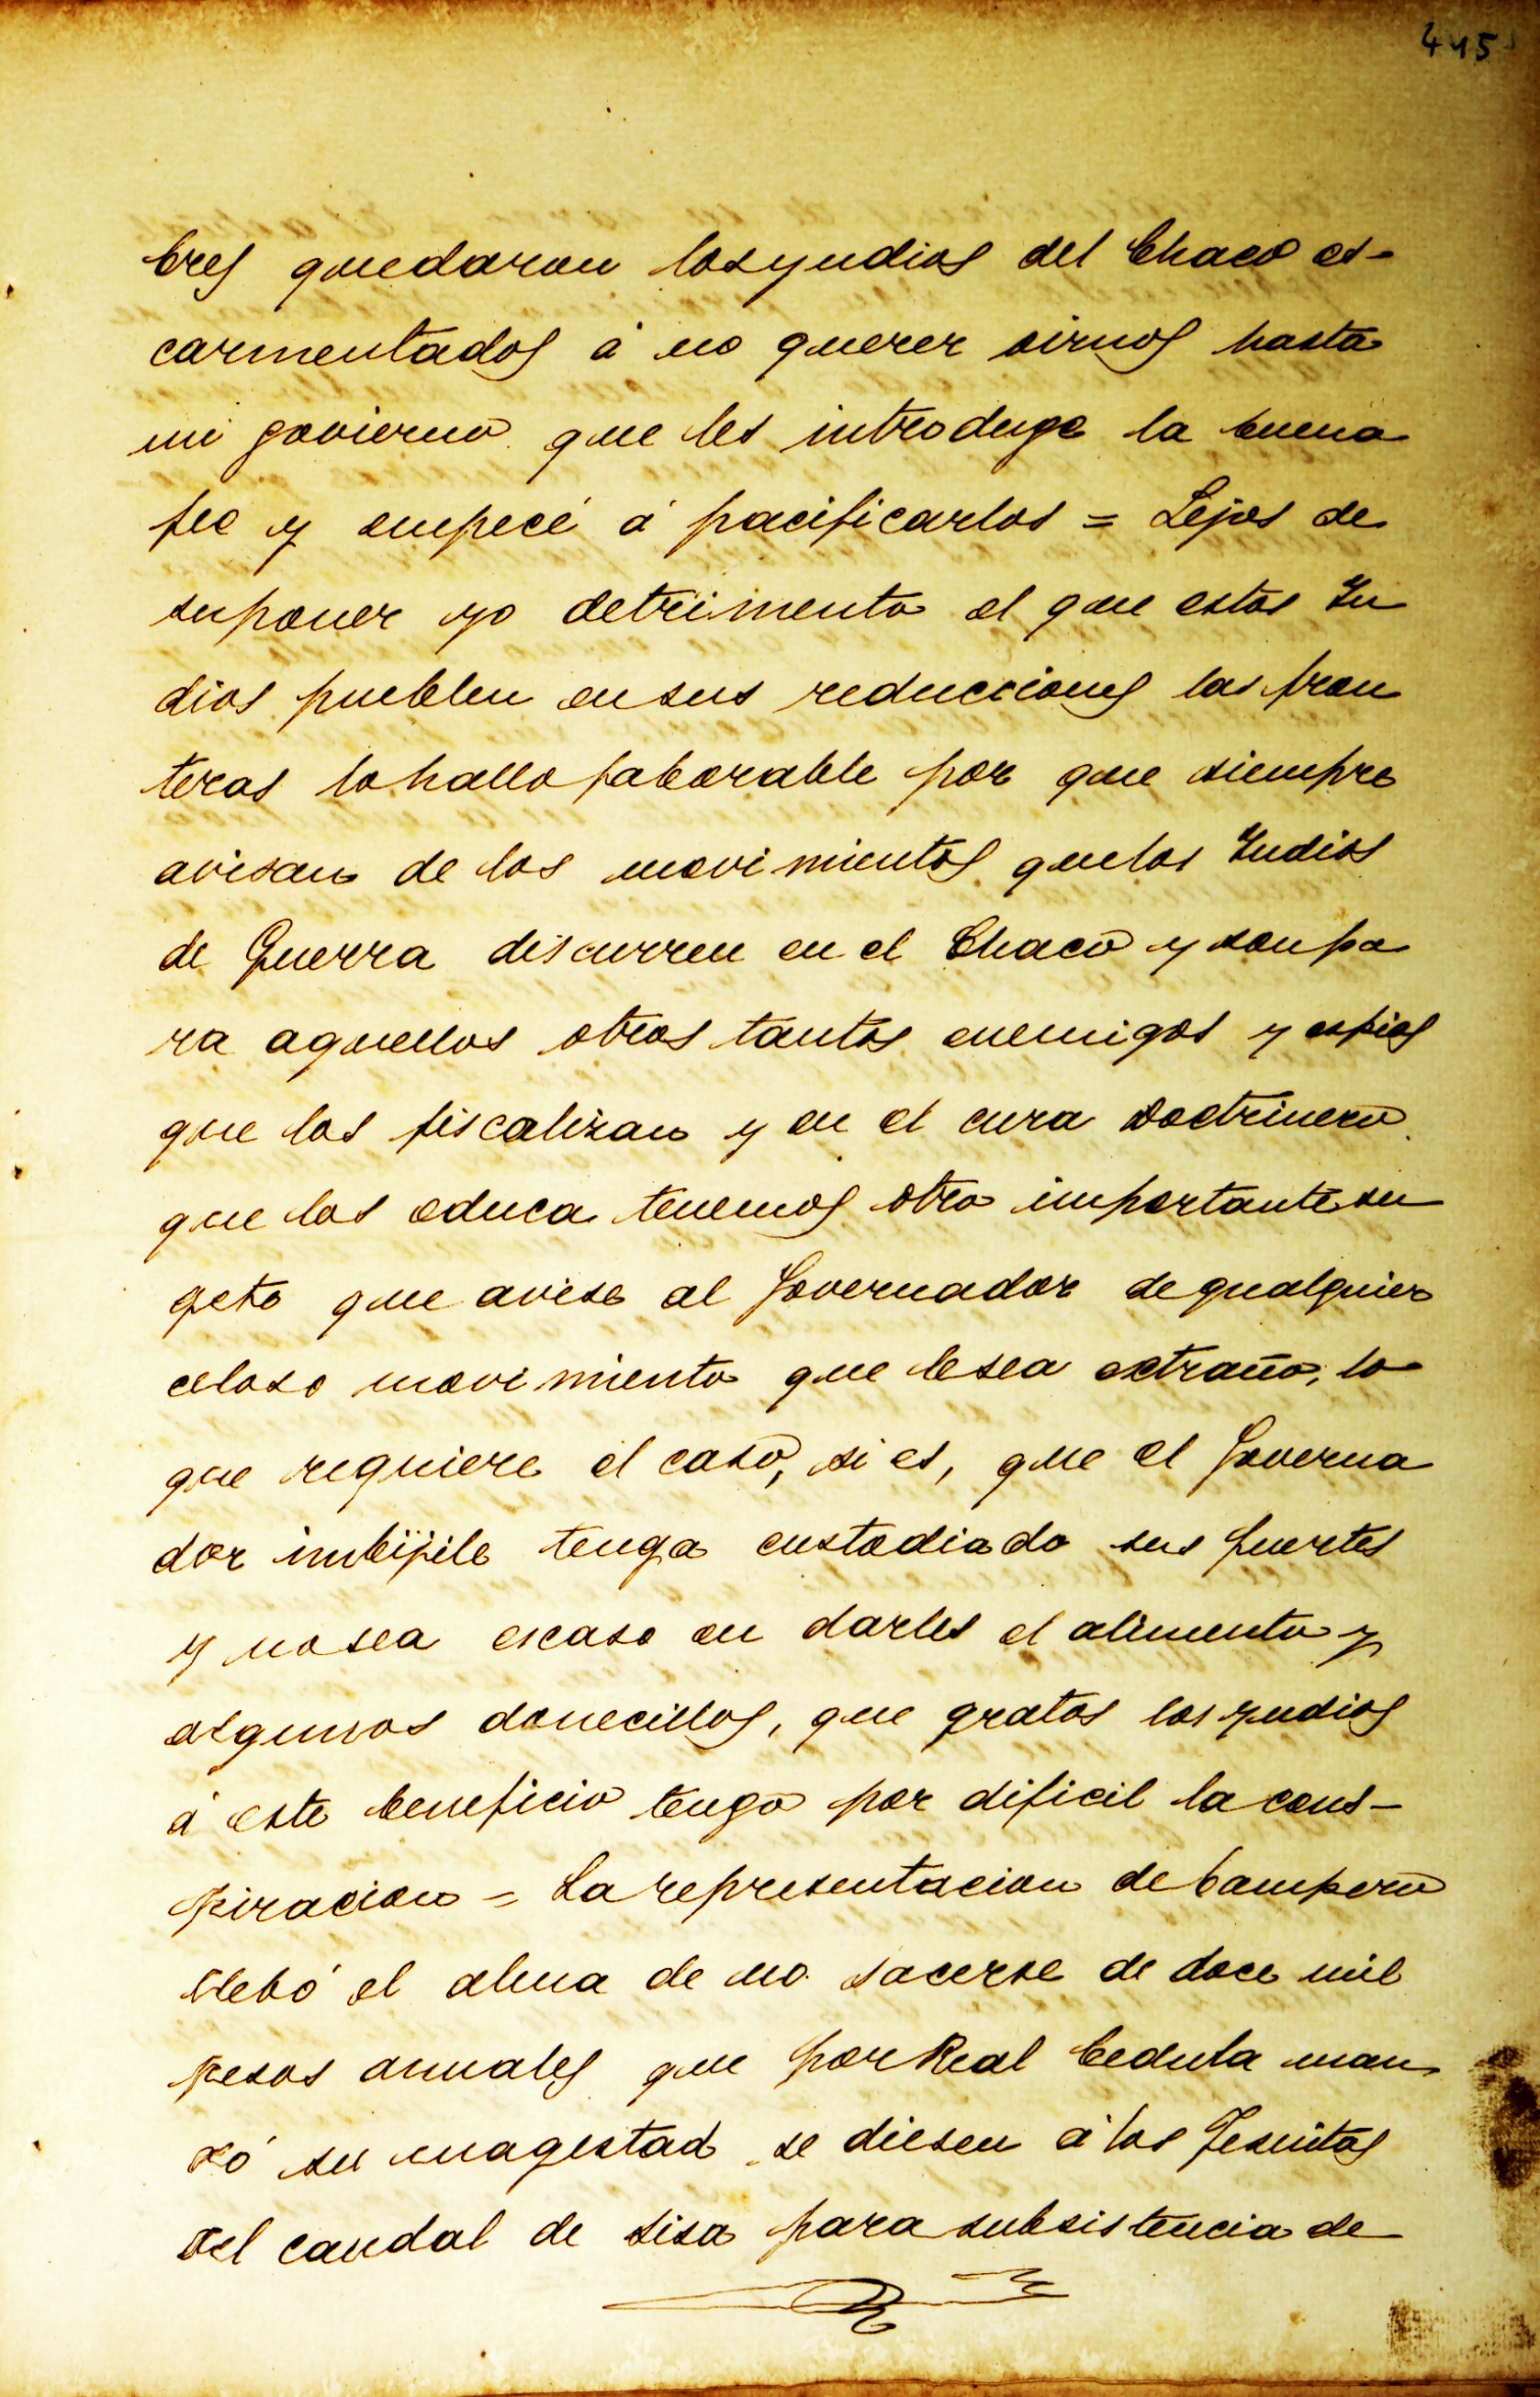 415
bres quedaron los yndios del Chaco es-
carmentados á no querer oirnos hasta
mi govierno que les introduge la buena
fee y empecé á pacificarlos = Lejos de
suponer yo detrimento el que estos In
dios pueblen en sus reducciones las fron
teras lo hallo faborable por que siempre
avisan de los movimientos que los Indios
de Guerra discurren en el Chaco y son pa
ra aquellos otros tantos enemigos y espias
que los fiscalizan y en el cura Doctrinero
que los educa tenemos otro importante su
geto que avise al Governador de qualquier
celoso movimiento que le sea extraño, lo
que requiere el caso, si es, que el Governa
dor tenga custodiado sus fuertes
y no sea escaso en darles el alimento y
algunos donecillos, que gratos los yndios
á este beneficio tengo por dificil la cons-
piracion = La representacion de Campero
llebó el alma de no sacerse de doce mil
pesos annales que por Real Cedula man
dó su magestad se diesen á los Jesuitas
del caudal de sisa para subsistencia de